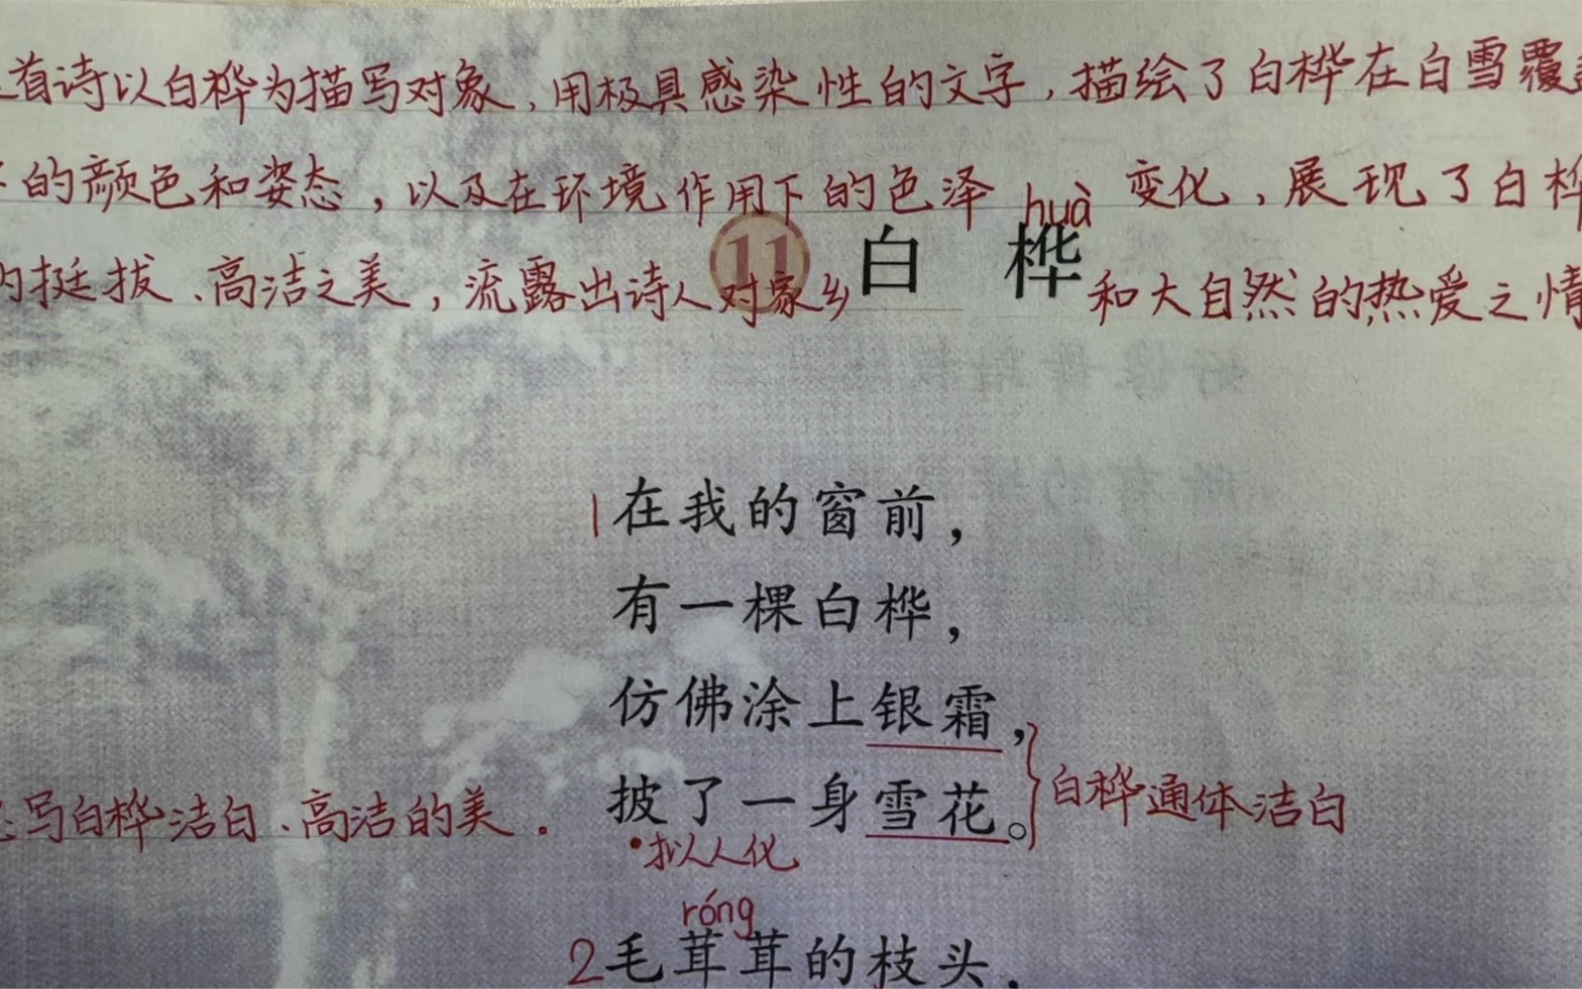 首诗以白桦为描写对象，用极具感染性的文字，描绘了白桦在白雪覆
的颜色和姿态，以及在环境作用下的色泽变化，展现了白桦
huà
11 白 桦
挺拔、高洁之美，流露出诗人对家乡和大自然的热爱之情
1在我的窗前，
有一棵白桦，
仿佛涂上银霜，
披了一身雪花。
白桦通体洁白
写白桦洁白、高洁的美。
拟人化
róng
2毛茸茸的枝头，